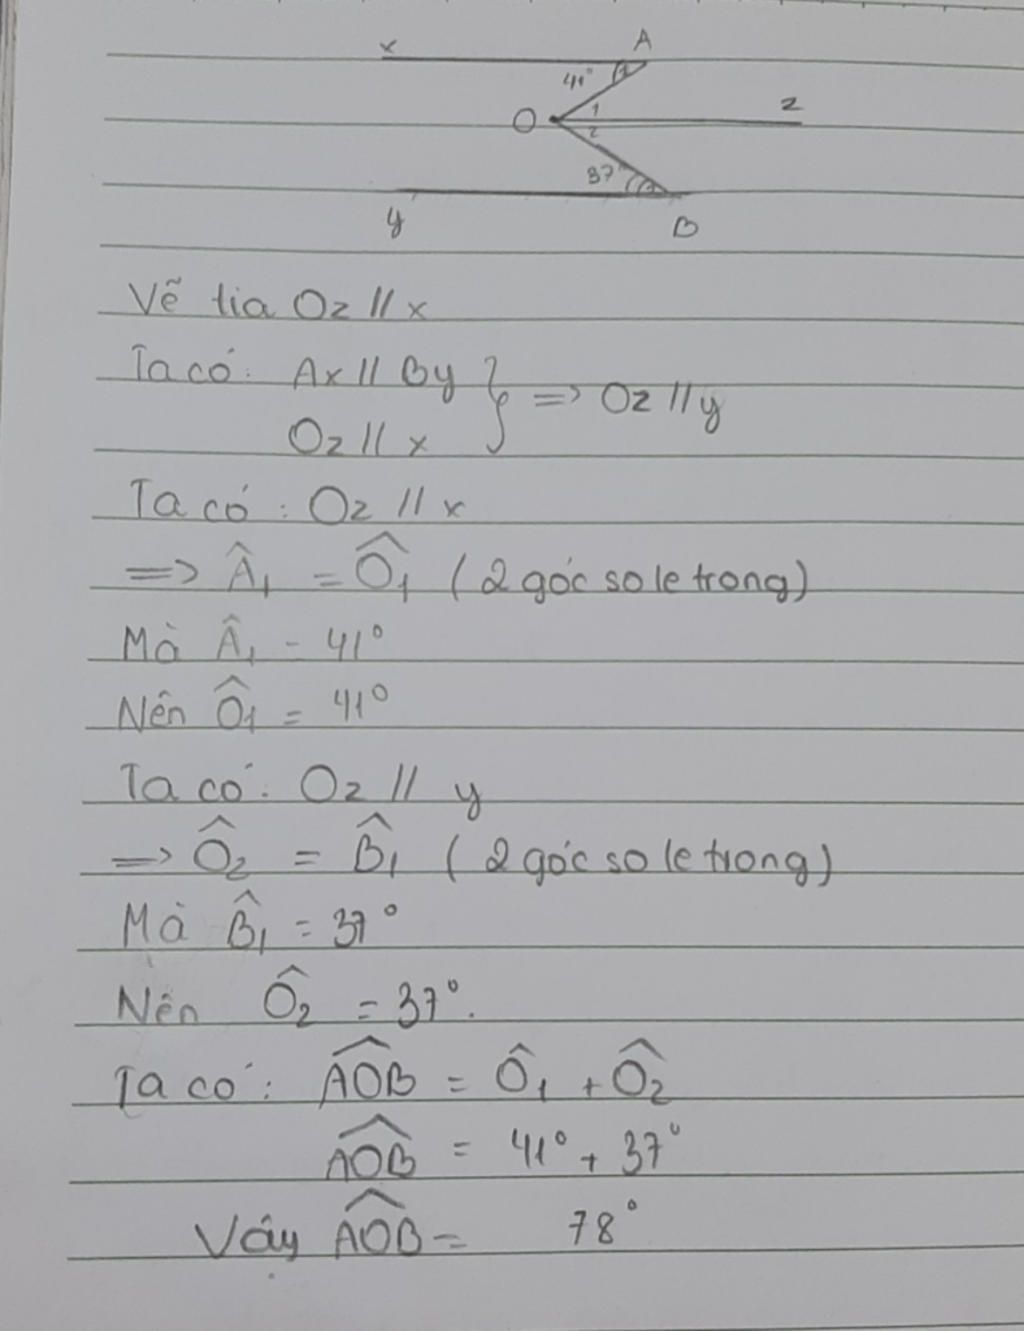 x A
41° 1
O 1 z
2
37° 1
y B
Vẽ tia Oz // x
Ta có: Ax // By } => Oz // y
Oz // x
Ta có : Oz // x
=> Â₁ = Ô₁ ( 2 góc so le trong)
Mà Â₁ = 41°
Nên Ô₁ = 41°
Ta có: Oz // y
=> Ô₂ = B̂₁ ( 2 góc so le trong)
Mà B̂₁ = 37°
Nên Ô₂ = 37°.
Ta có: AOB̂ = Ô₁ + Ô₂
AOB̂ = 41° + 37°
Vậy AOB̂ = 78°